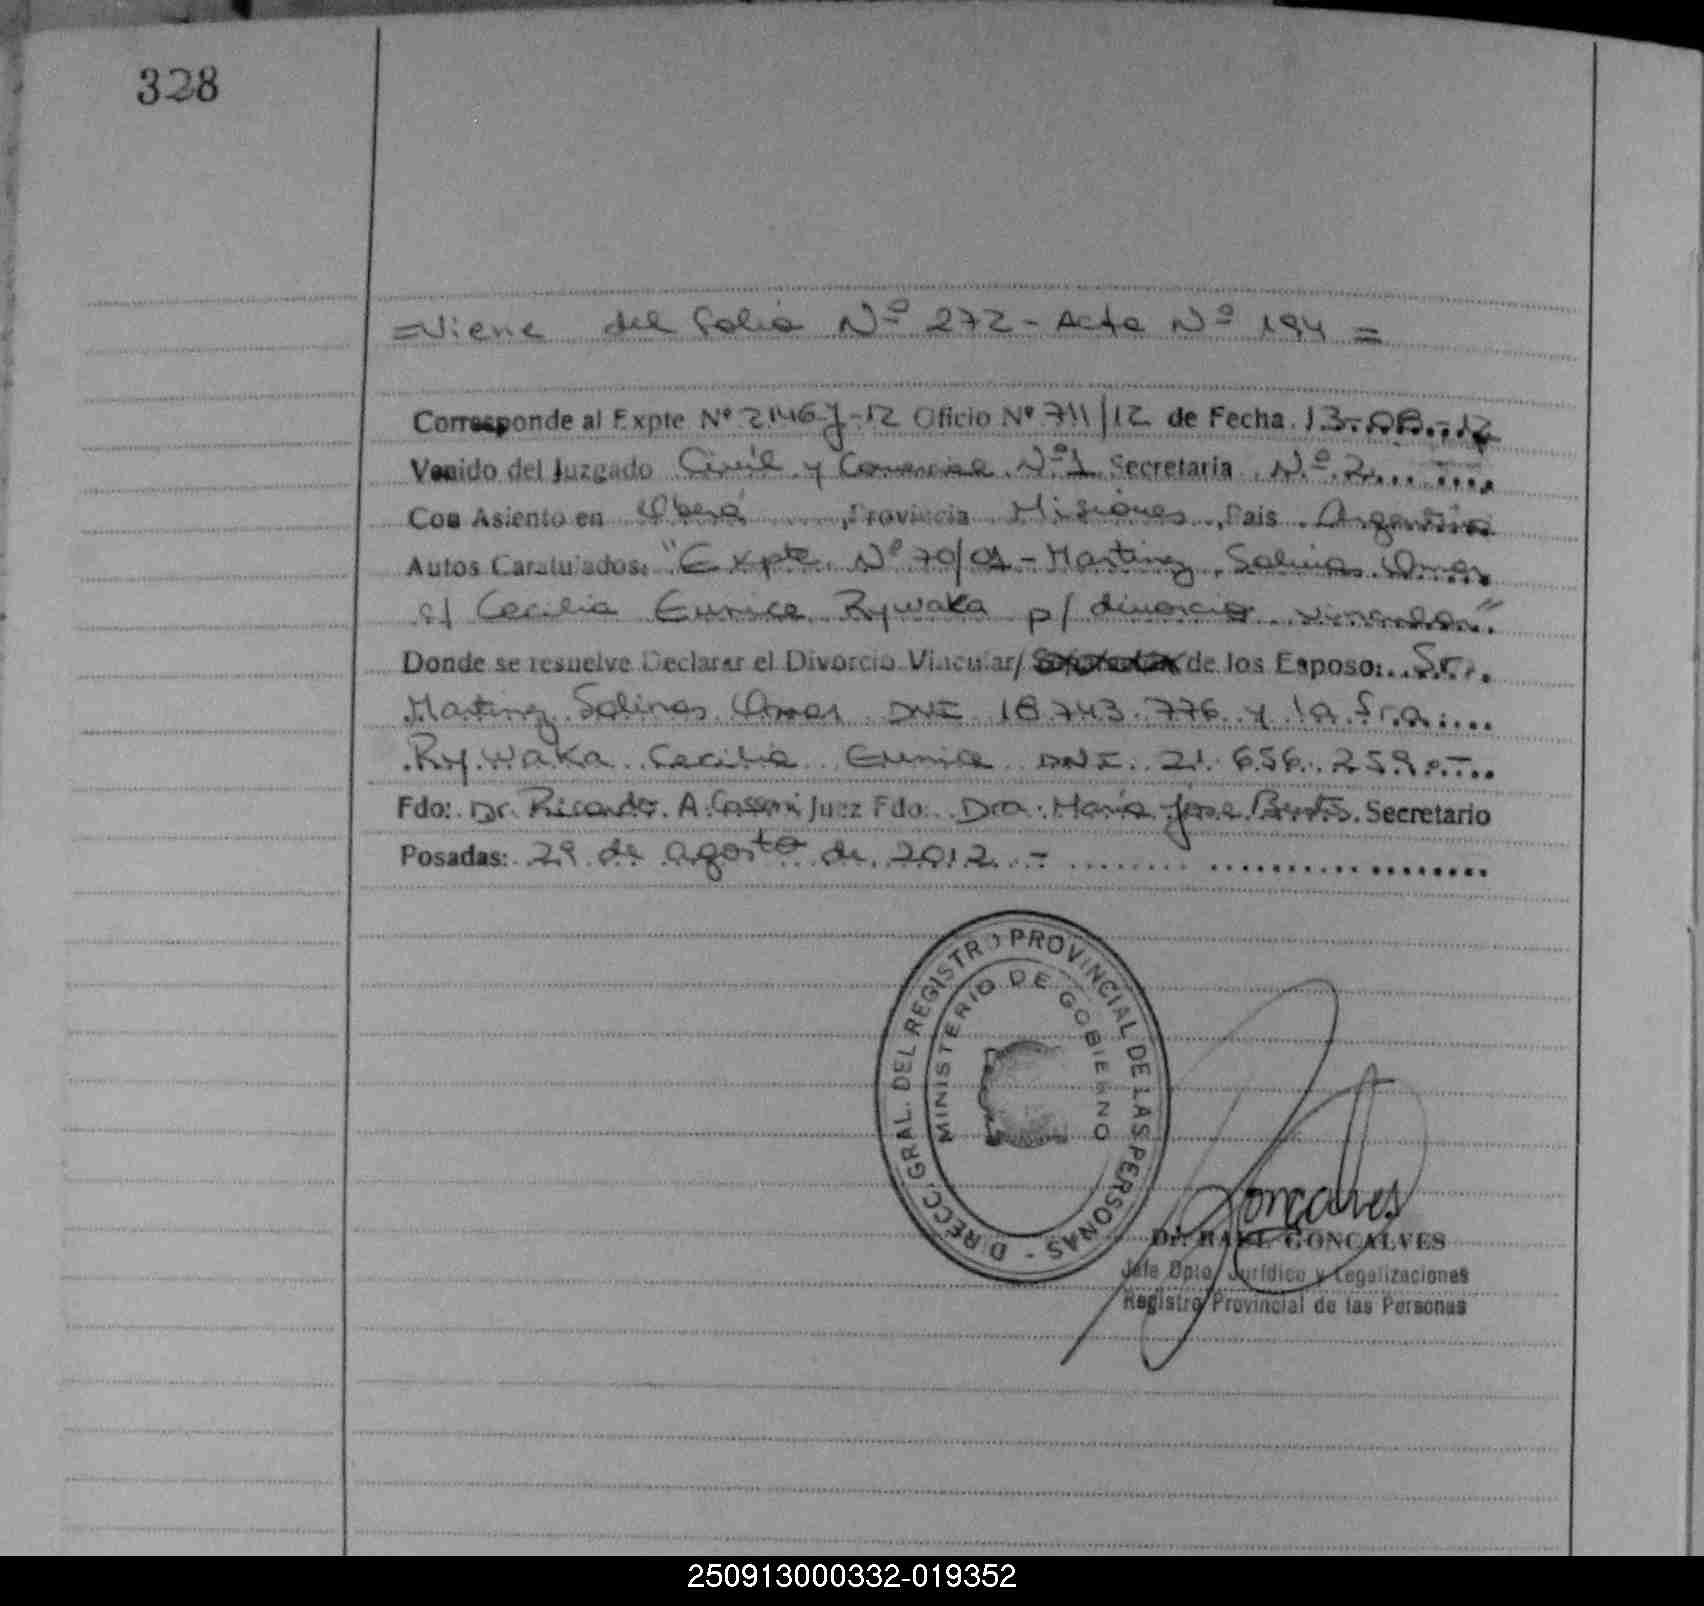 328
=Viene del folio Nº 272 - Acta Nº 194 =
Corresponde al Expte Nº 2146-J-12 Oficio Nº 711/12 de Fecha 13-08-12
Venido del Juzgado Civil y Comercial Nº1 Secretaria Nº 2
Con Asiento en Oberá, Provincia Misiones, Pais Argentina
Autos Caratulados: "Expte. Nº 70/01 - Martinez Salinas Omar
c/ Cecilia Eunice Rywaka p/ divorcio vincular"
Donde se resuelve Declarar el Divorcio Vincular/ de los Esposo: Sr.
Martinez Salinas Omar DNI 18.743.776 y la Sra.
Rywaka Cecilia Eunice DNI. 21.656.259.-
Fdo: Dr. Ricardo A. Juez Fdo: Dra. Maria Jose Secretario
Posadas: 29 de agosto de 2012.-
DIRECC. GRAL. DEL REGISTRO PROVINCIAL DE LAS PERSONAS -
MINISTERIO DE GOBIERNO
Goncalves
Dr. RAUL GONCALVES
Jefe Dpto. Jurídico y Legalizaciones
Registro Provincial de las Personas
250913000332-019352